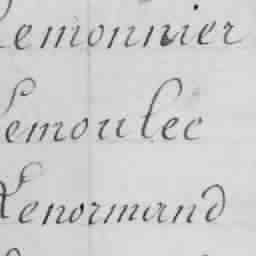 Lemonnier
Lemoulec
Lenormand